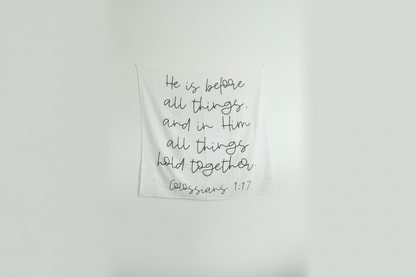 He is before
all things,
and in Him
all things
hold together.
Colossians 1:17